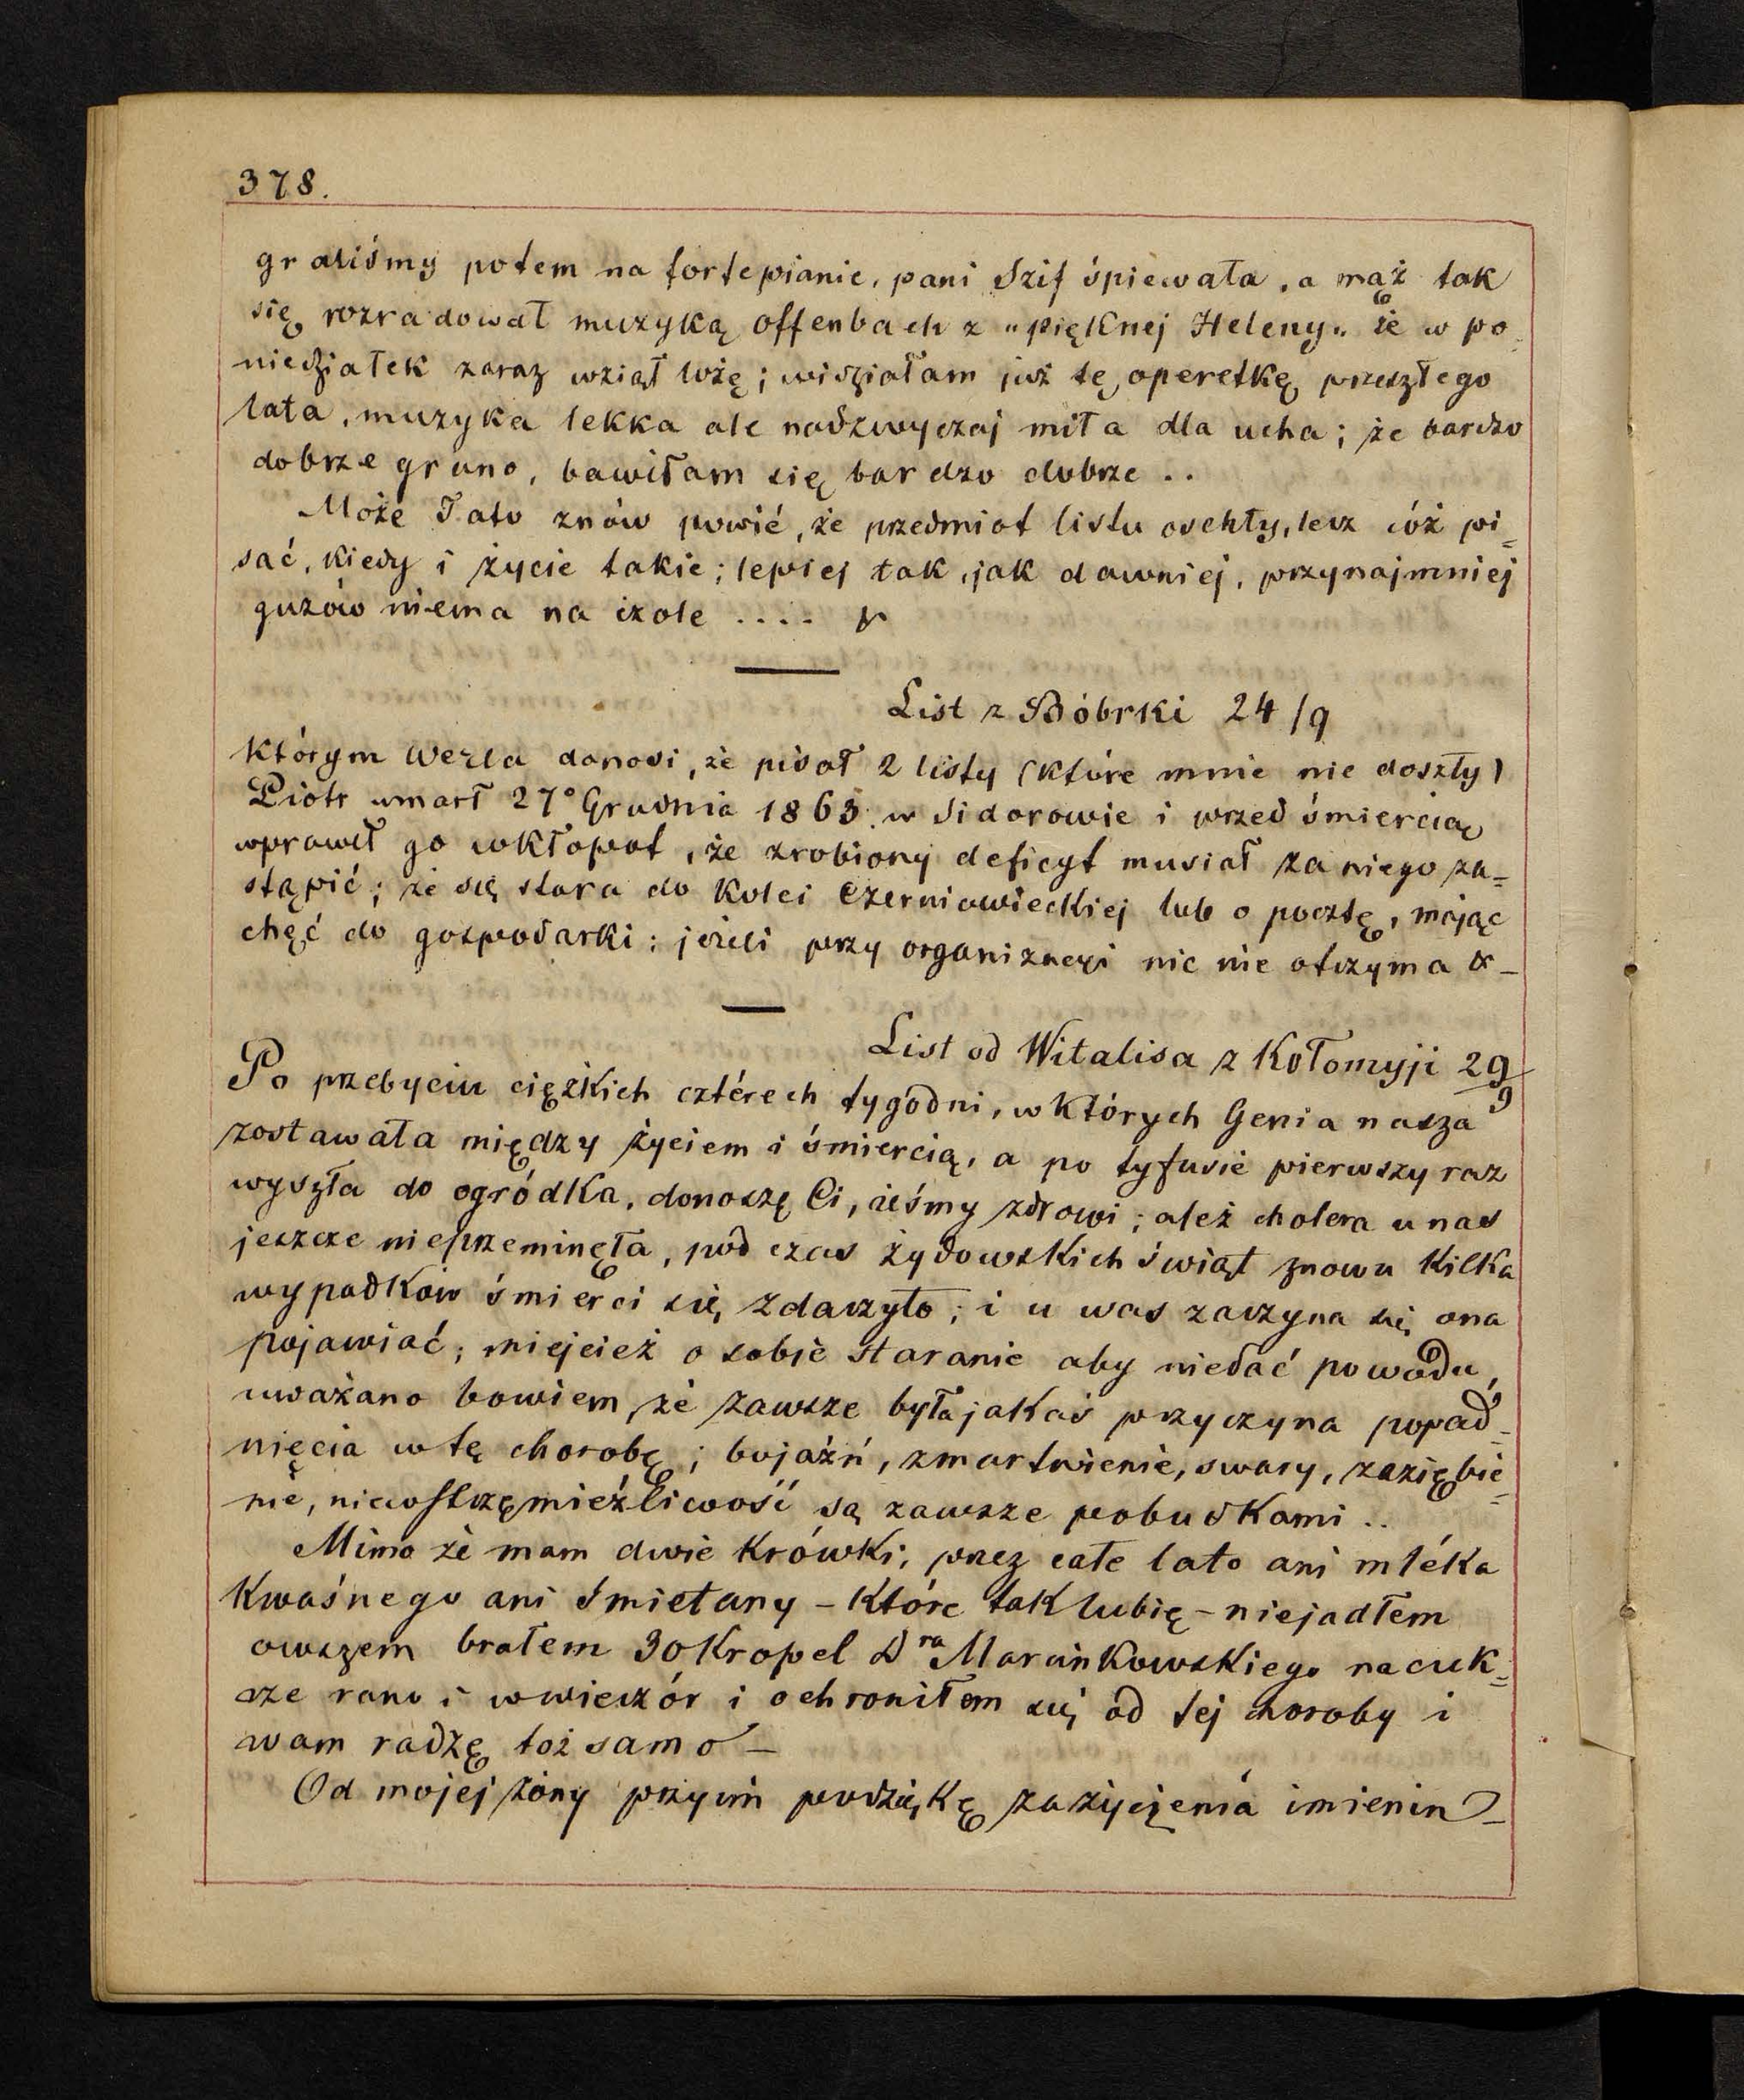 378.
graliśmy potem na fortepianie, pani Szif śpiewała, a mąż tak
się rozradował muzyką offenbach z „pięknej Heleny„ że w po=
niedziałek zaraz wziął lożę; widziałam już tę operetkę przeszłego
lata, muzyka lekka ale nadzwyczaj miła dla ucha; że bardzo
dobrze grano, bawiłam się bardzo dobrze ..
Może Tato znów powié, że przedmiot listu oschły, lecz cóż pi=
sać, kiedy i życie takie; lepiej tak, jak dawniej, przynajmniej
guzów niema na czole ....
List z Bóbrki 24/9
którym Wezla donosi, że pisał 2 listy (które mnie nie doszły)
Piotr umarł 27° Grudnia 1863. w Sidorowie i przed śmiercią
wprawił go wkłopot, że zrobiony deficyt musiał za niego za=
stąpić; że się stara do kolei Czerniowieckiej lub o pocztę, mając
chęć do gospodarki; jeżeli przy organizacyi nic nie otrzyma &-
List od Witalisa z Kołomyji 29/9
Po przebyciu ciężkich cztérech tygodni, w których Genia nasza
zostawała między życiem i śmiercią, a po tyfusie pierwszy raz
wyszła do ogródka, donoszę Ci, żeśmy zdrowi; ależ cholera u nas
jeszcze nieprzeminęła, pod czas żydowskich świąt znowu kilka
wypadków śmierci się zdarzyło; i u was zaczyna się ona
pojawiać; miejcież o sobie staranie aby niedać powodu,
uważano bowiem, że zawsze była jakaś przyczyna popad=
nięcia w tę chorobę; bojaźń, zmartwienie, swary, zaziębie=
nie, niewstrzęmieźliwość są zawsze pobudkami ..
Mimo że mam dwie krówki, przez całe lato ani mléka
kwaśnego ani śmietany - które tak lubię - niejadłem
owszem brałem 30 kropel Dra Marcinkowskiego na cuk=
rze rano i wwieczór i ochroniłem się od tej choroby i
wam radzę toż samo -
Od mojej żony przyim podziękę za życzenia imienin -